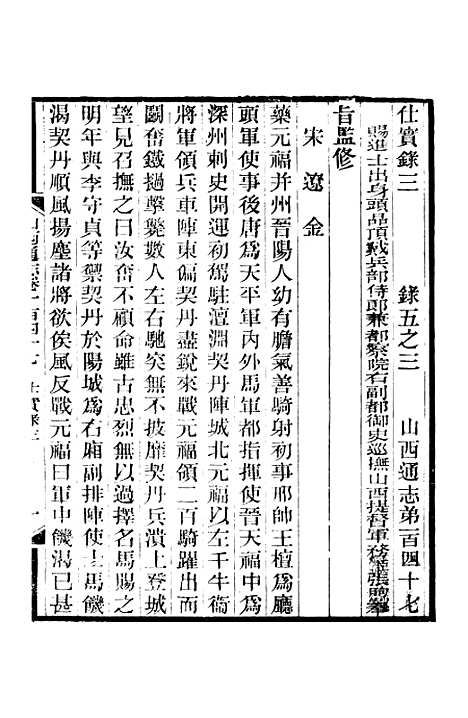 仕實錄三 錄五之三 山西通志第一百四十七
賜進士出身頭品頂戴兵部侍郎兼都察院右副都御史巡撫山西提督軍務張煦奉
旨監修
宋 遼 金
藥元福并州晉陽人幼有膽氣善騎射初事邢帥王檀爲廳
頭軍使事後唐爲天平軍內外馬軍都指揮使晉天福中爲
深州刺史開運初駕駐澶淵契丹陣城北元福以左千牛衞
將軍領兵車陣東偏契丹盡銳來戰元福領二百騎躍出而
鬭奮鐵撾擊斃數人左右馳突無不披靡契丹兵潰上登城
望見召撫之曰汝奮不顧命雖古忠烈無以過擇名馬賜之
明年與李守貞等禦契丹於陽城爲右廂副排陣使士馬饑
渴契丹順風揚塵諸將欲俟風反戰元福曰軍中饑渴已甚